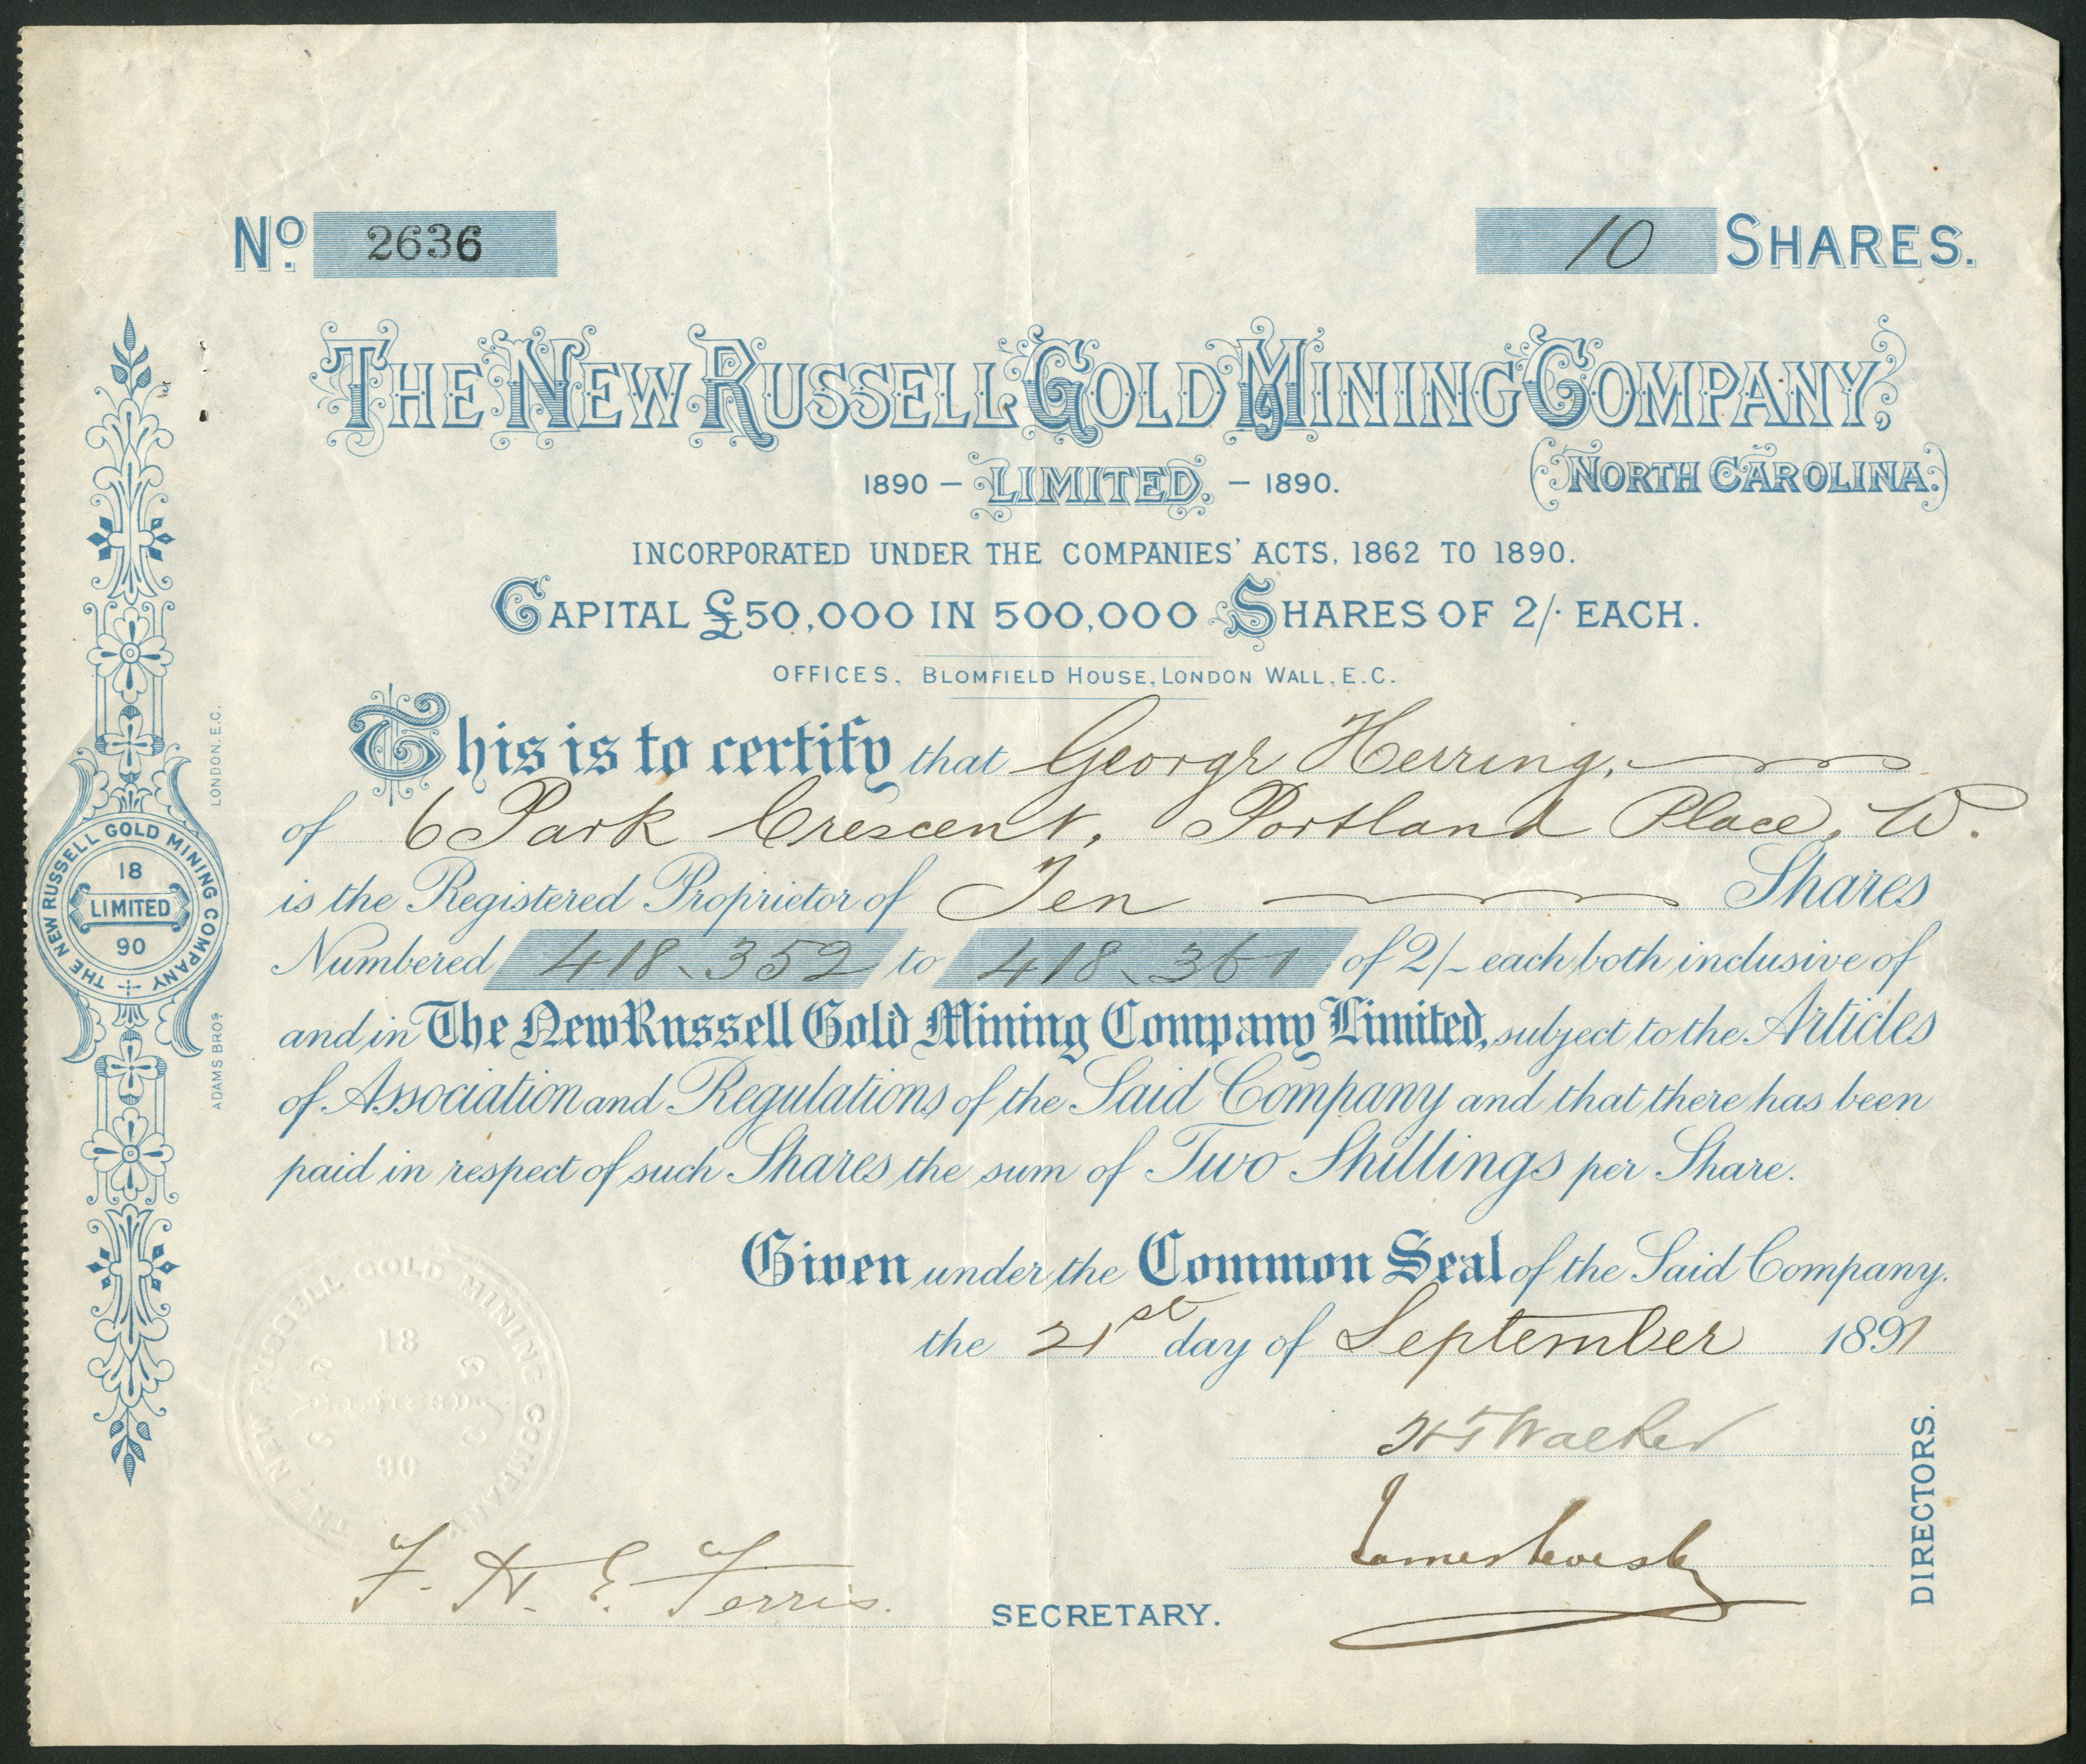 No. 2636
10 SHARES.
THE NEW RUSSELL GOLD MINING COMPANY,
1890 – LIMITED. – 1890.
(NORTH CAROLINA.)
INCORPORATED UNDER THE COMPANIES' ACTS, 1862 TO 1890.
CAPITAL £50,000 IN 500,000 SHARES OF 2/- EACH.
OFFICES, BLOMFIELD HOUSE, LONDON WALL, E.C.
This is to certify that George Herring,
of 6 Park Crescent, Portland Place, W.
is the Registered Proprietor of Ten Shares
Numbered 418.352 to 418.361 of 2/- each both inclusive of
and in The New Russell Gold Mining Company Limited, subject to the Articles
of Association and Regulations of the Said Company and that there has been
paid in respect of such Shares the sum of Two Shillings per Share.
Given under the Common Seal of the Said Company.
the 21st day of September 1891
Walker
James
DIRECTORS.
F. H. E. Ferris.
SECRETARY.
THE NEW RUSSELL GOLD MINING COMPANY
18
LIMITED
90
ADAMS BROS LONDON, E.C.
THE NEW RUSSELL GOLD MINING COMPANY
18
LIMITED
90